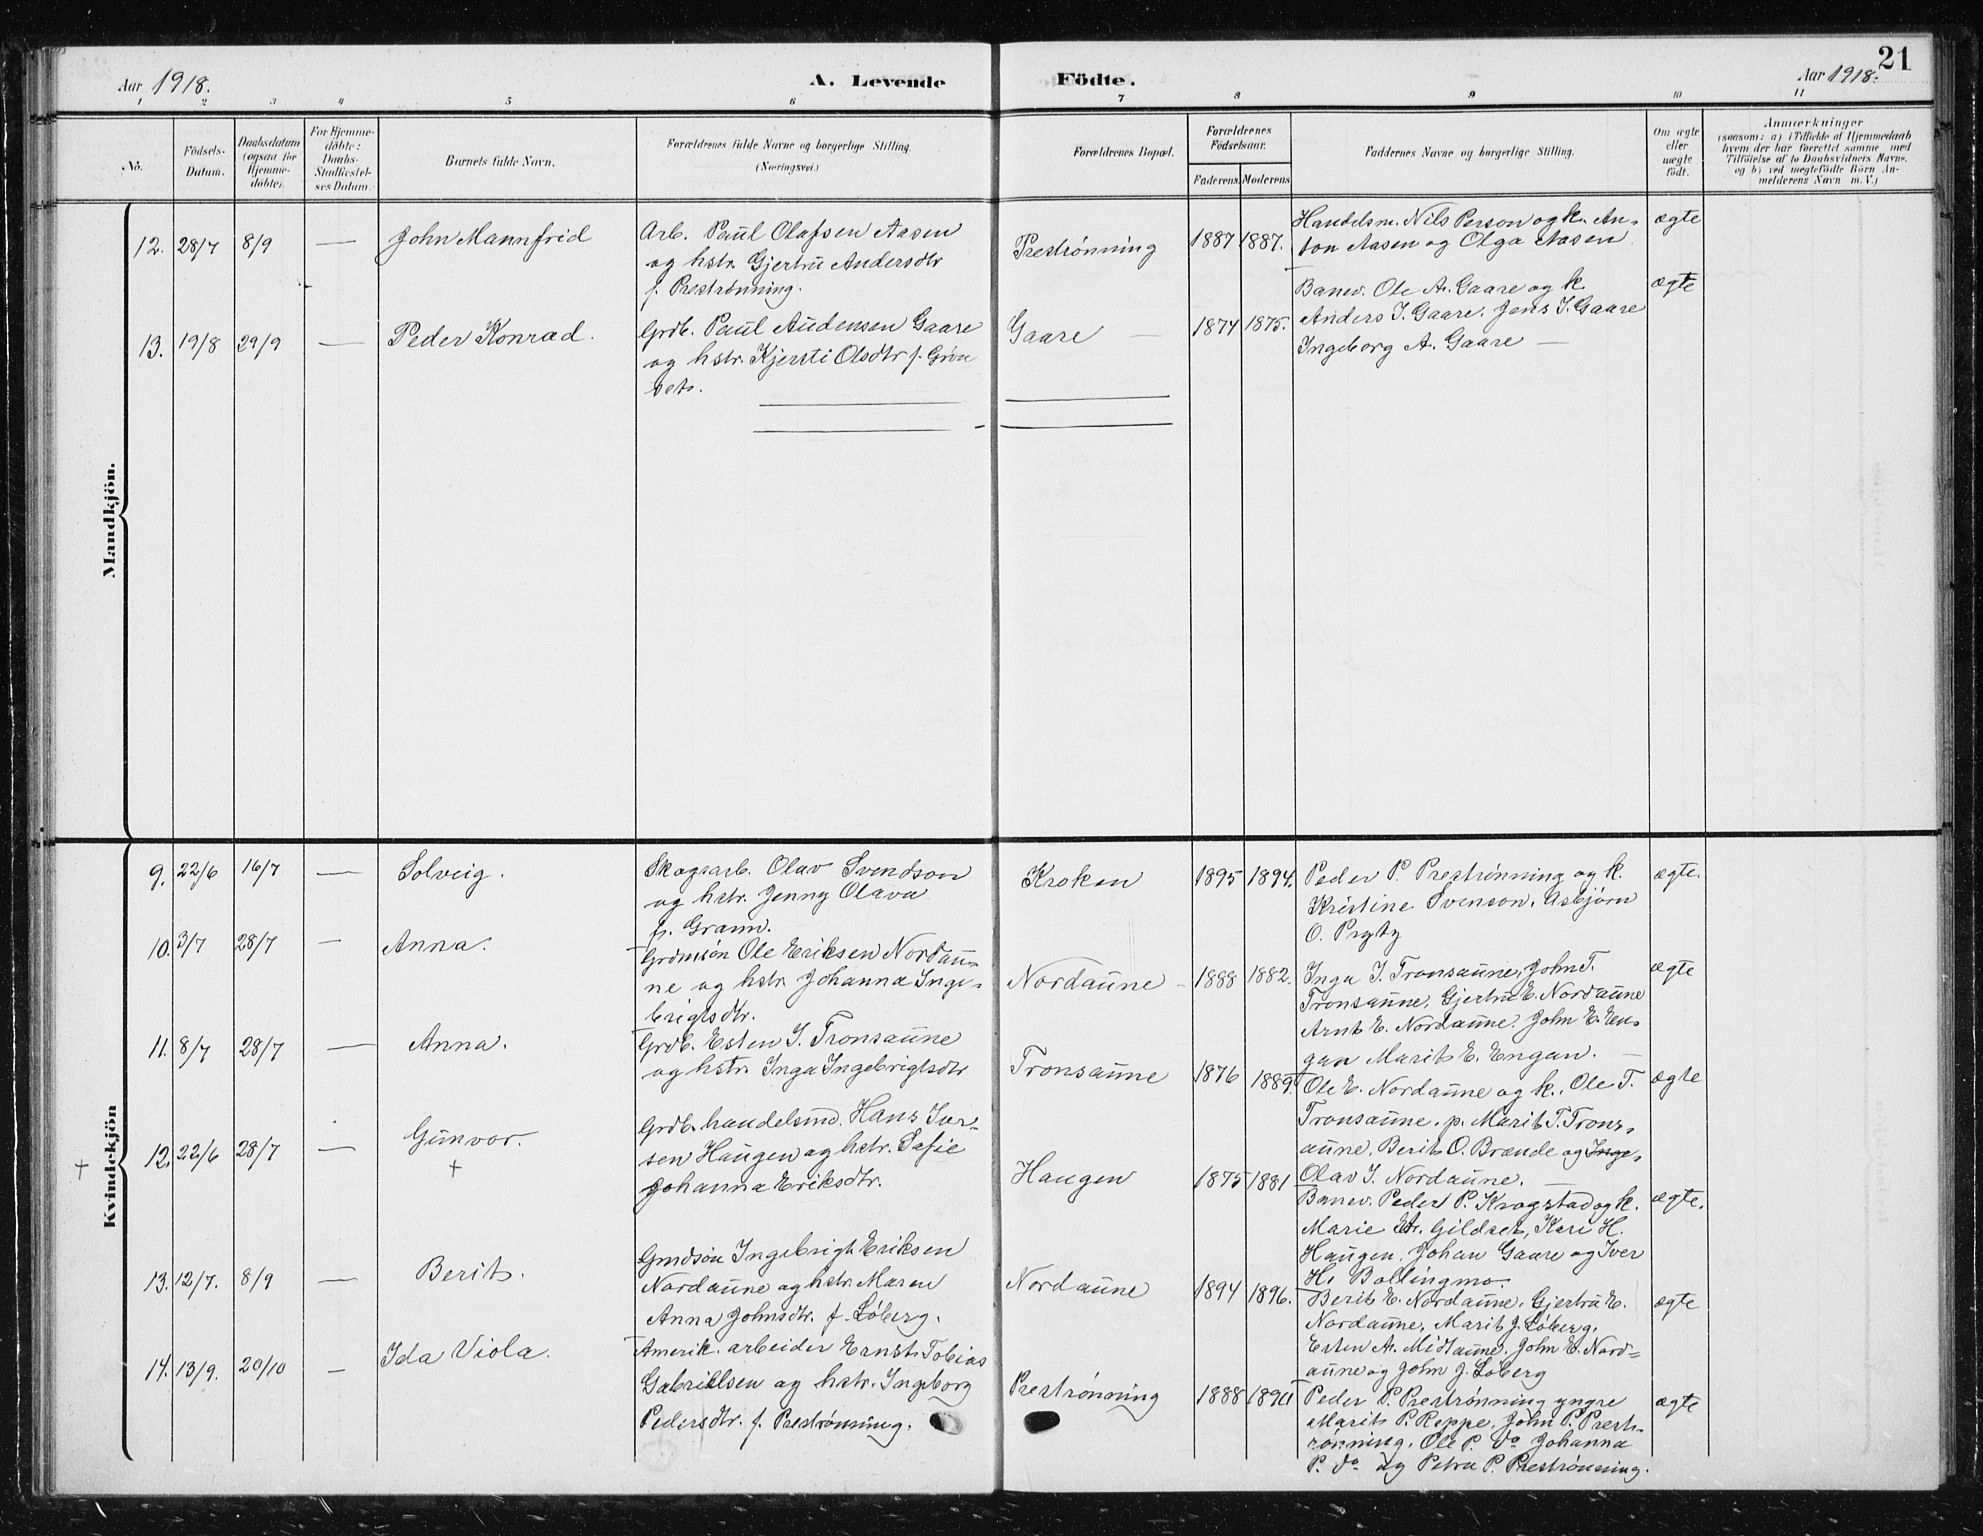 21
Aar 1918.
A. Levende Födte.
Aar 1918.
1 2 3 4 5 6 7 8 9 10 11
No.
Födsels-
Datum.
Daabsdatum
(ogsaa for
Hjemme-
döbte).
For Hjemme-
döbte:
Daabs-
Stadfæstel-
ses Datum.
Barnets fulde Navn.
Forældrenes fulde Navne og borgerlige Stilling.
(Næringsvei.)
Forældrenes Bopæl.
Forældrenes
Födselsaar.
Faderens. Moderens.
Faddernes Navne og borgerlige Stilling.
Om ægte
eller
uægte
født.
Anmærkninger
(saasom: a) i Tilfælde af Hjemmedaab
hvem der har forrettet samme med
Tilföielse af to Daabsvidners Navne.
og b) ved uægtefödte Börn An-
melderens Navn m. V.)
Mandkjön.
12. 28/7 8/9 — John Mannfrid
Arb. Paul Olafsen Aasen
og hstr. Gjertru Andersdtr
f. Prestrønning.
Prestrønning
1887 1887.
Handelsm. Nils Person og k. An-
ton Aasen og Olga Aasen.
ægte
13. 19/8 29/9 — Peder Konrad.
Grdb. Paul Audensen Gaare
og hstr. Kjersti Olsdtr f. Grøn
set.
Gaare —
1874 1875.
Banev. Ole A. Gaare og k.
Anders J. Gaare. Jens J. Gaare
Ingeborg A. Gaare —
ægte
Kvindekjön
9. 22/6 16/7 — Solveig.
Skogsarb. Olav Svendson
og hstr. Jenny Olava
f. Gramn.
Kroken
1895 1894.
Peder P. Prestrønning og k.
Kristine Svenson. Asbjørn
O. Pryty
ægte.
10. 3/7 28/7 — Anna.
Grdmsøn Ole Eriksen Nordau-
ne og hstr. Johanna Inge-
brigtsdtr.
Nordaune -
1888 1882.
Inga J. Tronsaune, John T.
Tronsaune, Gjertru E. Nordaune
Arnt E. Nordaune. John E. En-
gan Marit E. Engan. —
ægte
11. 8/7 28/7 — Anna.
Grdb. Esten J. Tronsaune
og hstr. Inga Ingebrigtsdtr
Tronsaune
1876 1889
Ole E. Nordaune og k. Ole T.
Tronsaune. p. Marit T. Trons-
aune, Berit O. Brænde og Inge-
Olav J. Nordaune. —
ægte
+ 12. 22/6 28/7 — Gunvor. +
Grdb. handelsmd. Hans Iver-
sen Haugen og hstr. Sofie
Johanna Eriksdtr.
Haugen
1875 1881
Banev. Peder P. Krogstad og k.
Marie Gildset, Kari H.
Haugen, Johan Gaare og Iver
H. Bollingmo.
ægte.
13. 12/7. 8/9 — Berit.
Grmdsøn Ingebrigt Eriksen
Nordaune og hstr. Maren
Anna Johnsdtr. f. Løberg.
Nordaune
1894 1896.
Berit E. Nordaune. Gjertru E.
Nordaune, Marit J. Løberg.
Esten A. Midtaune, John E. Nord=
aune og John J. Løberg
ægte
14. 13/9. 20/10 — Ida Viola.
Amerik. arbeider Ernst Tobias
Gabrielsen og hstr. Ingeborg
Pedersdtr. f. Prestrønning.
Prestrønning
1888 1890
Peder P. Prestrønning yngre
Marit P. Reppe, John P. Prest-
rønning. Ole P. do Johanna
P. do og Petra P. Prestrønning.
ægte